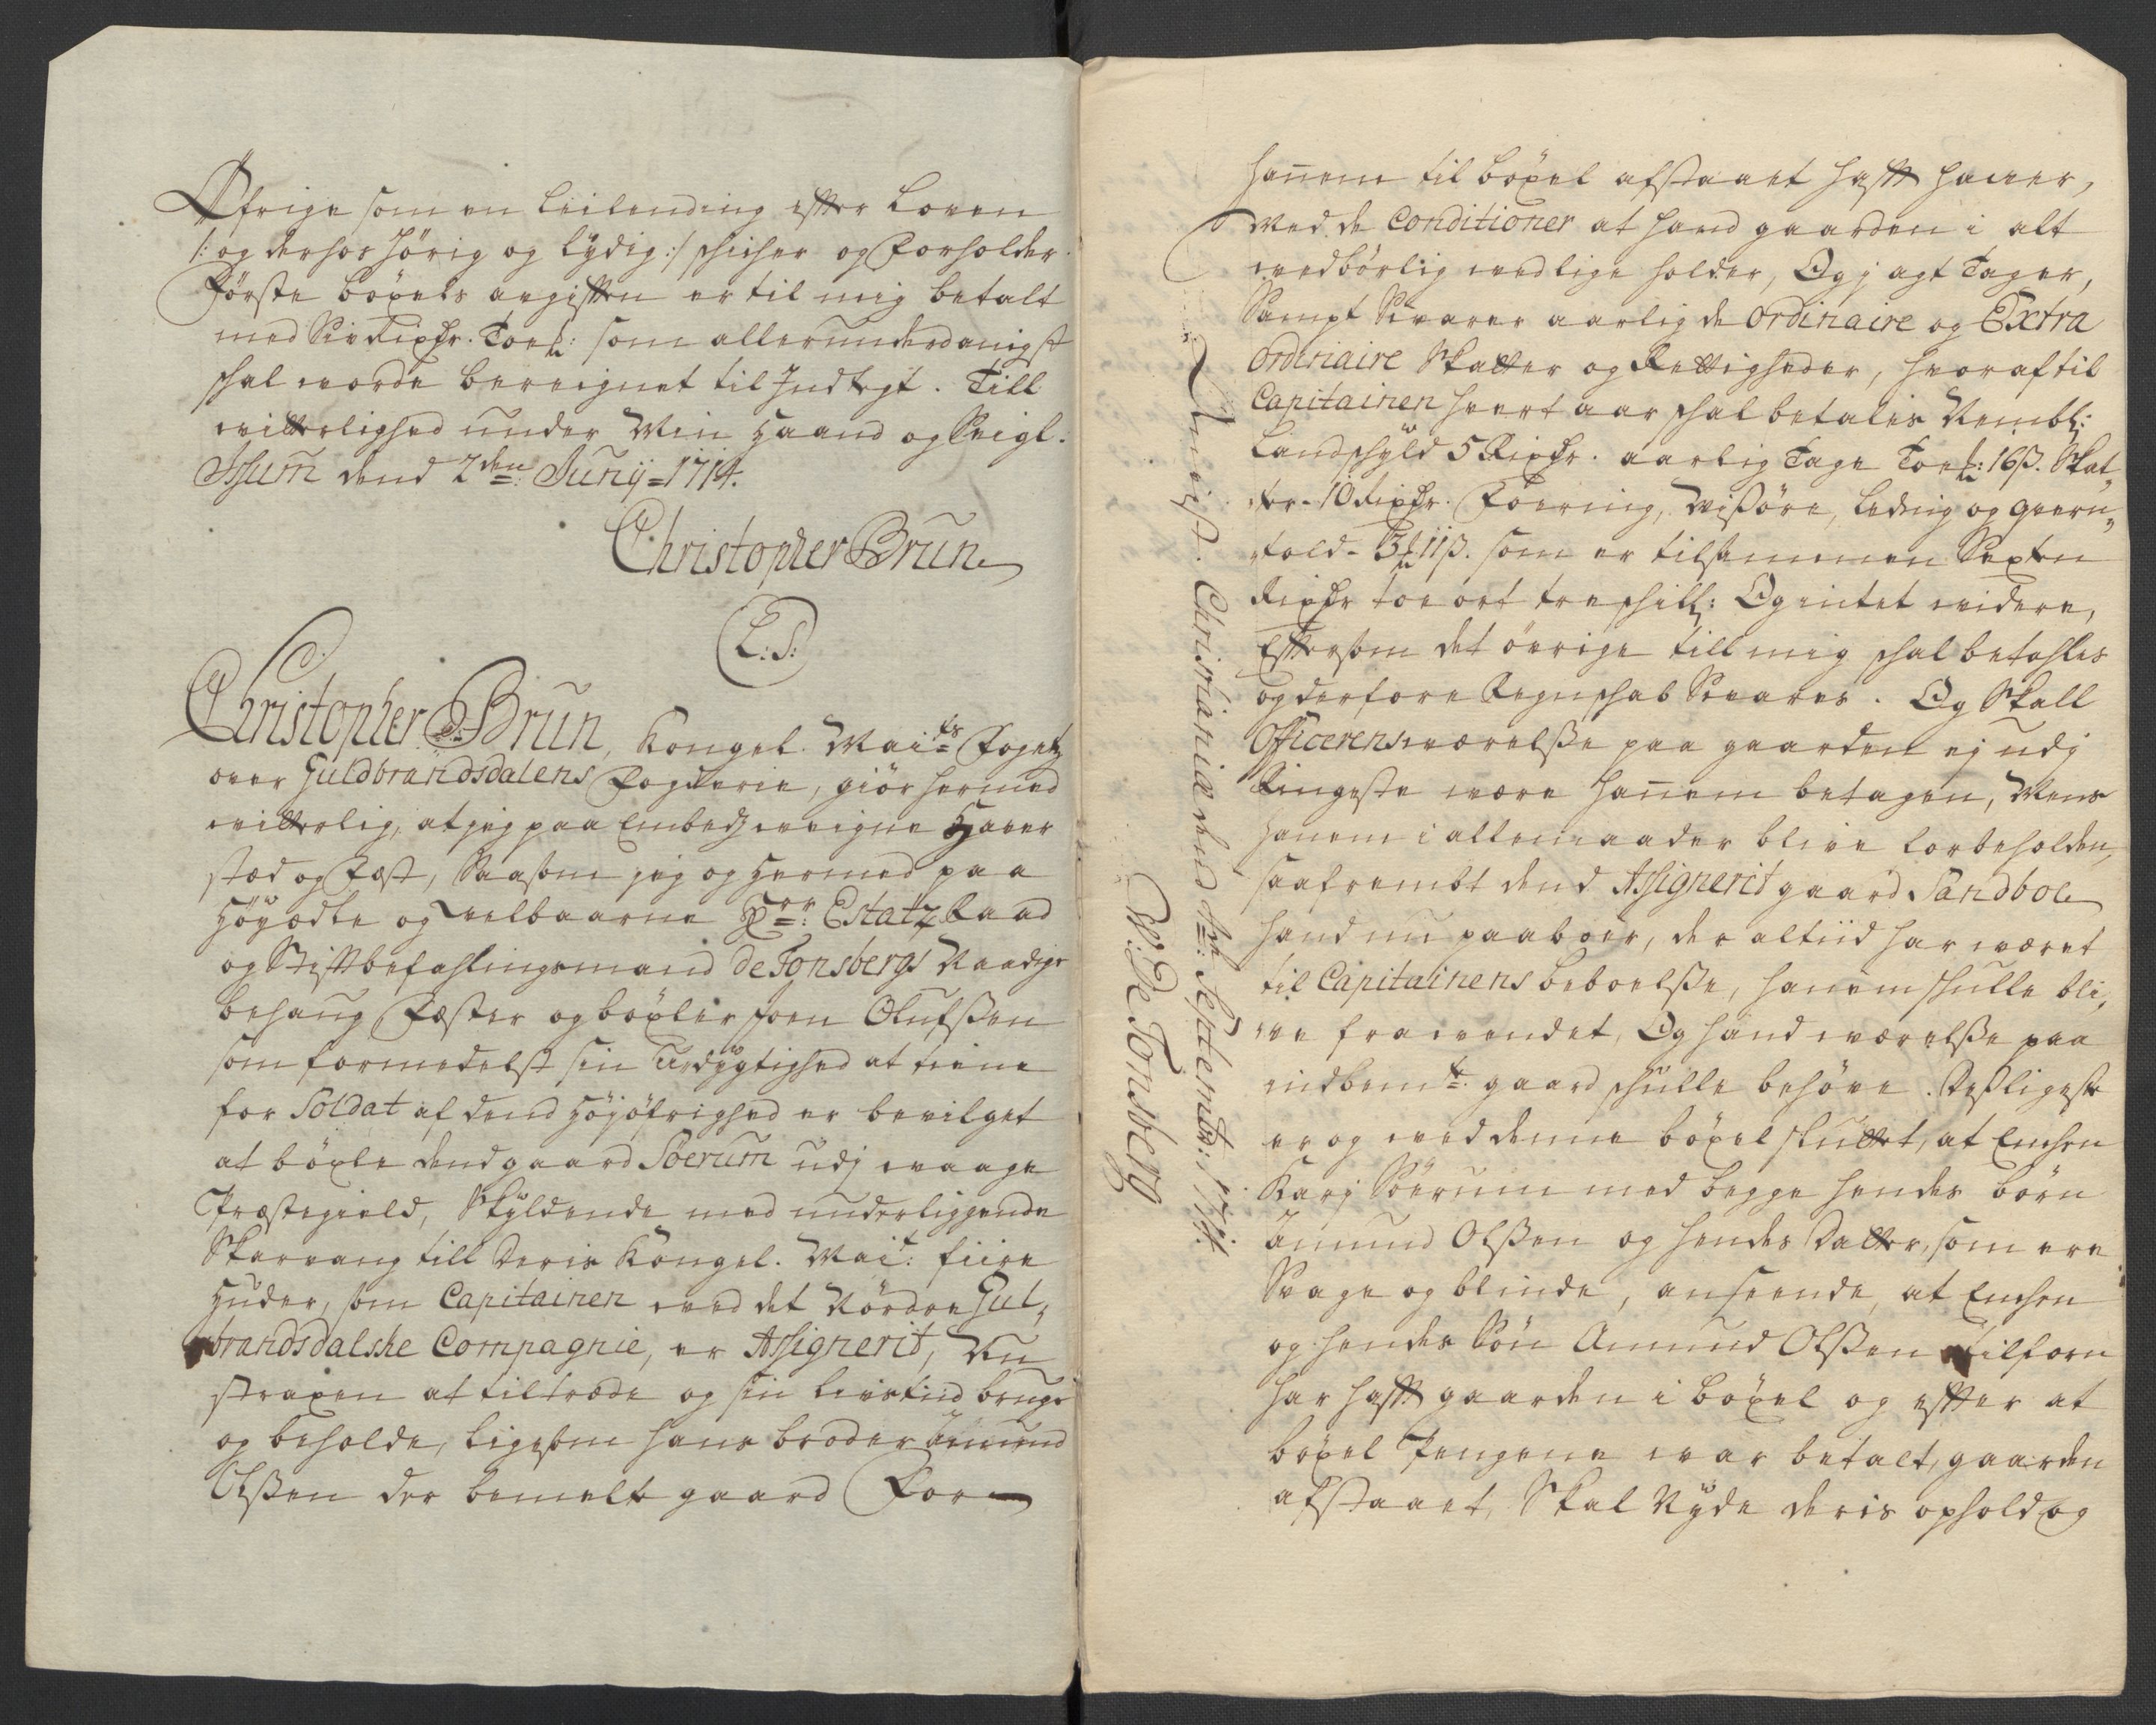 Øfrige som en Leilending efter Loven
/: og derhos hörig og lydig :/ schicher og Forholder.
Förste böxels avgiften er til mig betalt
med Siv Rixdr. Toe som allerunderdanigst
schal vorde beregnet til Indtegt. Till
vitterlighed under Min Haand og Seigl.
Isum dend 2den Junij 1714.
Christopher Brun
L: S:
Christopher Brun, Kongel. Maits Fogetz
over Guldbrandsdalens Fogderie, giör hermed
vitterlig, at jeg paa Embedz veigne Haver
sted og Fest, Saasom jeg og Hermed paa
Höyædle og velbaarne Hr: Estatz Raad
og Stiftbefahlingsmand de Tonsbergs Naadige
behaug Fæster og böxler Joen Olufßen
som formedelst sin Udygtighed at tiene
for Soldat af dend Höyöfrighed er bevilget
at böxle dend gaard Soerum udj Waage
Præstegield, Skyldende med underliggende
Skarvang till Deris Kongel. Mait: fiire
Huder, som Capitainen ved det Nördre Gul-
brandsdalske Compagnie, er Assignerit, Nu
straxen at tiltræde og sin Livstiid bruge
og beholde, ligesom hans broder Amund
Olßen der bemelte gaard For
hannem til böxel afstaaet haft haver,
Med de Conditioner at hand gaarden i alt
vedbörlig vedlige holder, Og j agt Tager,
Sampt Svarer aarlig de Ordinaire og Extra
Ordinaire Skatter og Rettigheder, hvoraf til
Capitainen hvert aar schal betales Nembl:
Landschyld 5 Rixdr. aarlig Tage Toe: 16 ß. Skat-
ter - 10 Rixdr. Foering, Vißöre, Leding og qvern-
told - 3 11 ß. som er tilsammen Sexten
Rixdr toe ort tre schill: Og intet videre,
Eftersom det övrige till mig schal betahles
og derfore Regnschab Svares. Og Skall
Officerens værelße paa gaarden ej udj
Ringeste være hannem betagen, Mens
hanem i alle maader blive forbeholden,
saafrembt dend Assignerit gaard Sandboe
hand nu paaboer, der altiid har været
til Capitainens beboelße, hanem skulle bli-
ve fravendet, Og hand værelße paa
indbemte gaard schulle behöve. Desligeste
er og ved denne böxel sluttet, at Enchen
Kari Söerum med begge hendes börn
Amund Olßen og hendes Datter, som ere
Svage og blinde, anseende, at Enchen
og hendes Sön Amund Olßen tilforn
har hafft gaarden i böxel og efter at
böxel Pengene var betalt, gaarden
afstaaet, Skal Nyde deris ophold og
Christiania dend Septembr: 1714.
W: De Tonsberg